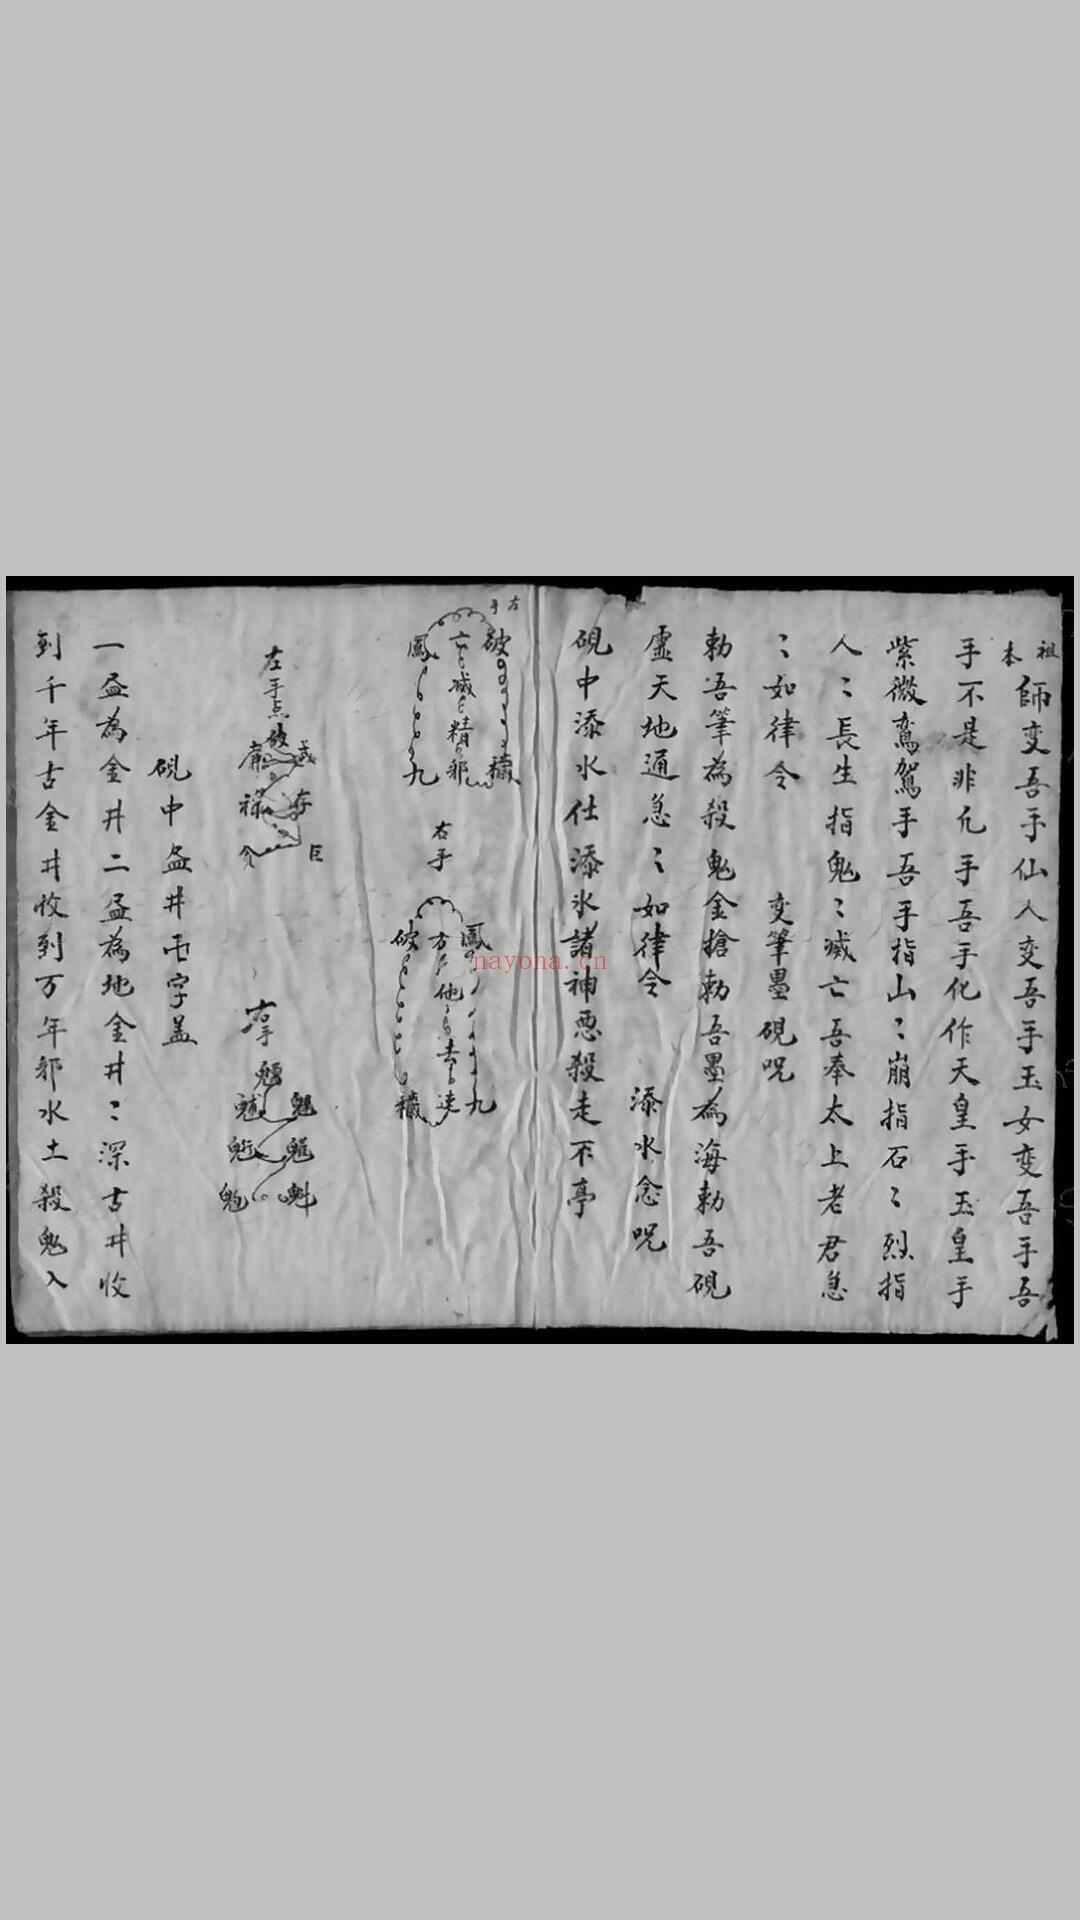 祖
本
師变吾手仙人变吾手玉女变吾手吾
手不是非凢手吾手化作天皇手玉皇手
紫微鸾駕手吾手指山〻崩指石〻烈指
人〻長生指鬼〻滅亡吾奉太上老君急
〻如律令
变筆墨硯咒
勅吾筆為殺鬼金搶勅吾墨為海勅吾硯
虚天地通急〻如律令
添水念咒
硯中添水仕添氷諸神悪殺走不亭
左手
破
穢
亡滅精邪
鳳
九
右手
鳳
九
方他去速
破
穢
nayona.cn
左手点
破
武
廉
存
禄
巨
右手
魁
硯中盆井字盖
一盆為金井二盆為地金井〻深古井收
到千年古金井收到万年邪水土殺鬼入